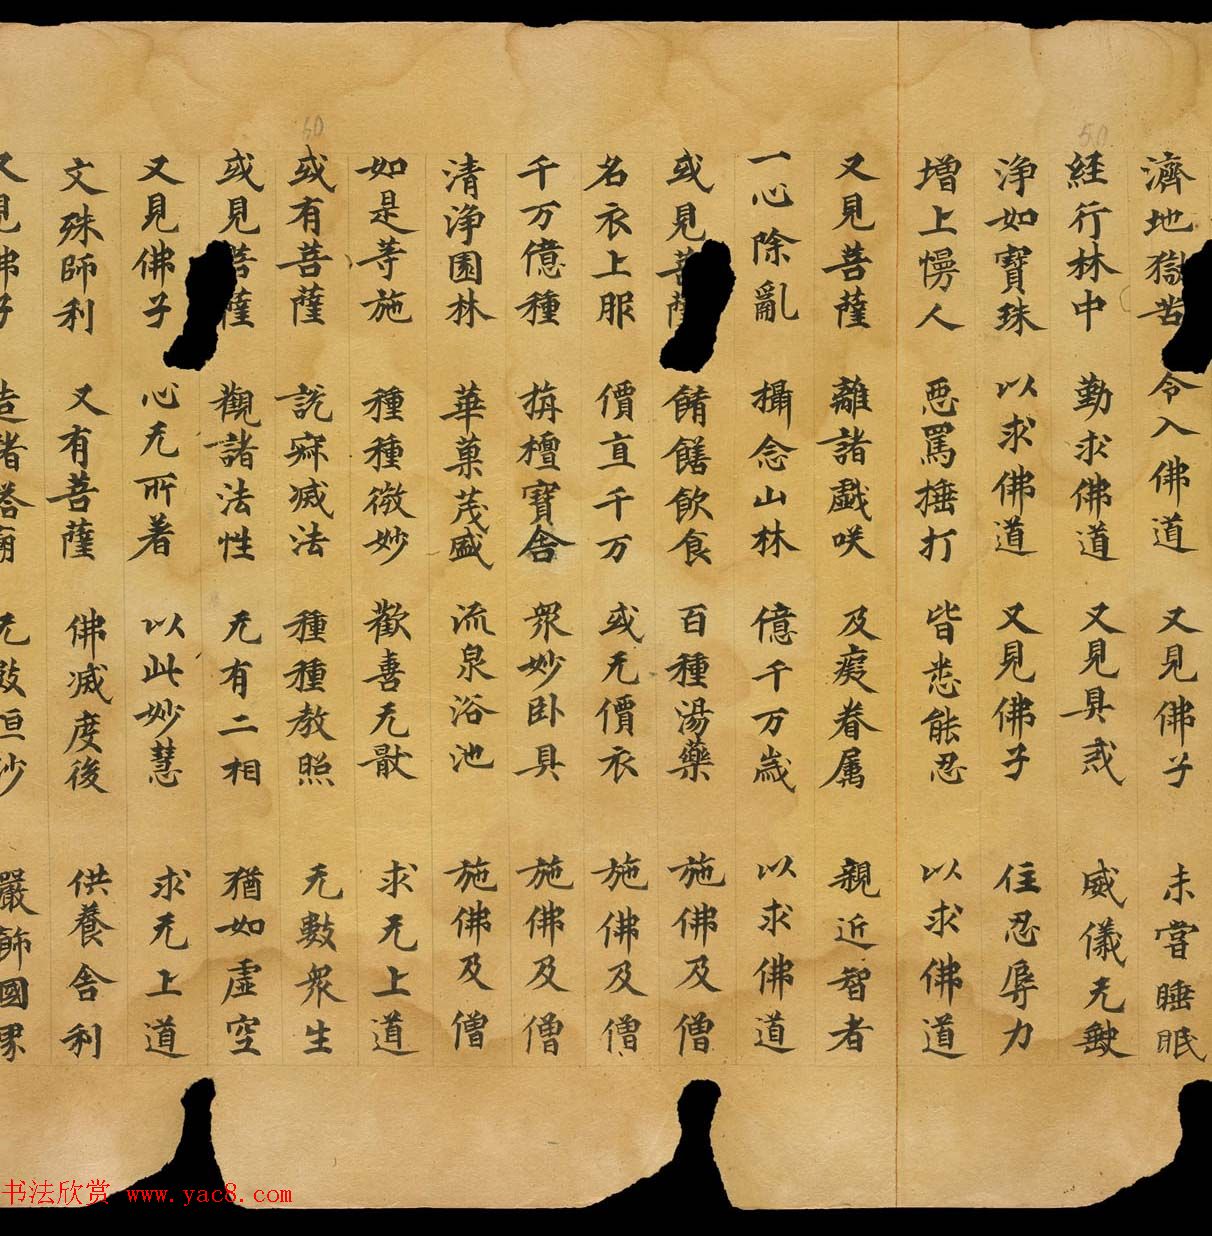 濟地獄苦 令入佛道 又見佛子 未嘗睡眠
経行林中 勤求佛道 又見具戒 威儀无缺
浄如寶珠 以求佛道 又見佛子 住忍辱力
增上慢人 惡罵捶打 皆悉能忍 以求佛道
又見菩薩 離諸戲咲 及癡眷属 親近智者
一心除亂 攝念山林 億千万歲 以求佛道
或見菩薩 餚饍飲食 百種湯藥 施佛及僧
名衣上服 價直千万 或无價衣 施佛及僧
千万億種 栴檀寶舎 衆妙卧具 施佛及僧
清浄園林 華菓茂盛 流泉浴池 施佛及僧
如是等施 種種微妙 歡喜无猒 求无上道
或有菩薩 説寂滅法 種種教照 无數衆生
或見菩薩 觀諸法性 无有二相 猶如虛空
又見佛子 心无所著 以此妙慧 求无上道
文殊師利 又有菩薩 佛滅度後 供養舍利
又見佛子 造諸塔廟 无數恒沙 嚴飾國界
50
60
书法欣赏 www.yac8.com